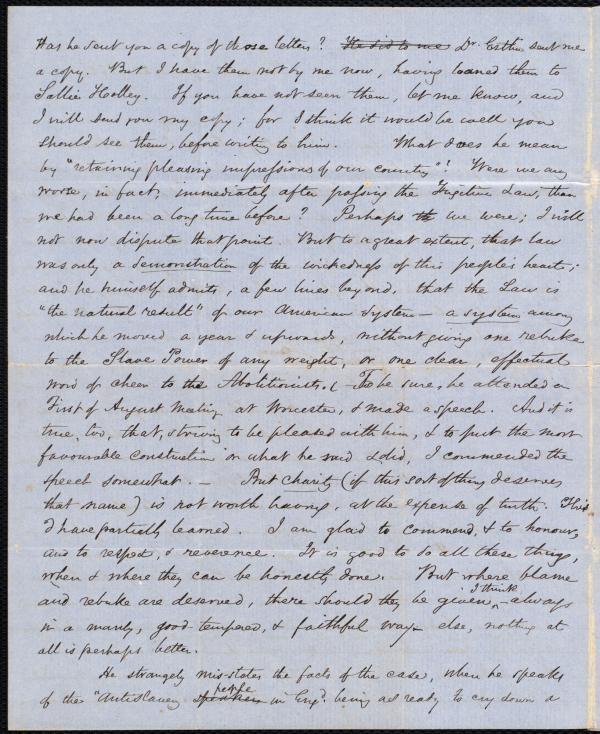 Has he sent you a copy of those letters? He did to me Dr. Estlin sent me
a copy. But I have them not by me now, having loaned them to
Sallie Holley. If you have not seen them, let me know, and
I will send you my copy; for I think it would be well you
should see them, before writing to him. What does he mean
by "retaining pleasing impressions of our country"! Were we any
worse, in fact, immediately after passing the Fugitive Law, than
we had been a long time before? Perhaps th we were; I will
not now dispute that point. But to a great extent, that law
was only a demonstration of the wickedness of this people's heart;
and he himself admits, a few lines beyond, that the Law is
"the natural result" of our American system — a system among
which he moved a year & upwards, without giving one rebuke
to the Slave Power of any weight, or one clear, effectual
word of cheer to the Abolitionists. (To be sure, he attended a
First of August Meeting at Worcester, & made a speech. And it is
true, too, that, striving to be pleased with him, & to put the most
favourable construction on what he said & did, I commended the
speech somewhat. — But charity (if this sort of thing deserves
that name) is not worth having, at the expense of truth. This
I have partially learned. I am glad to commend, & to honour,
and to respect, & reverence. It is good to do all these things,
when & where they can be honestly done. But where blame
and rebuke are deserved, there should they be given, I think, always
in a manly, good-tempered, & faithful way — else, nothing at
all is perhaps better.
He strangely mis-states the facts of the case, when he speaks
of the "Antislavery speakers people in Engd. being as ready to cry down a